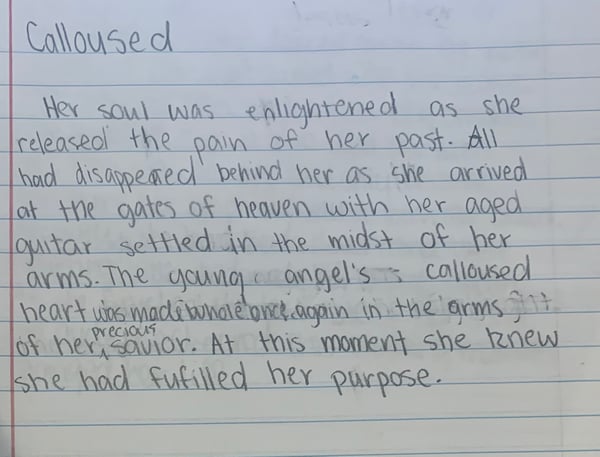 Calloused
Her soul was enlightened as she
released the pain of her past. All
had disappeared behind her as she arrived
at the gates of heaven with her aged
guitar settled in the midst of her
arms. The young angel's calloused
heart was made whole once again in the arms
of her precious savior. At this moment she knew
she had fufilled her purpose.